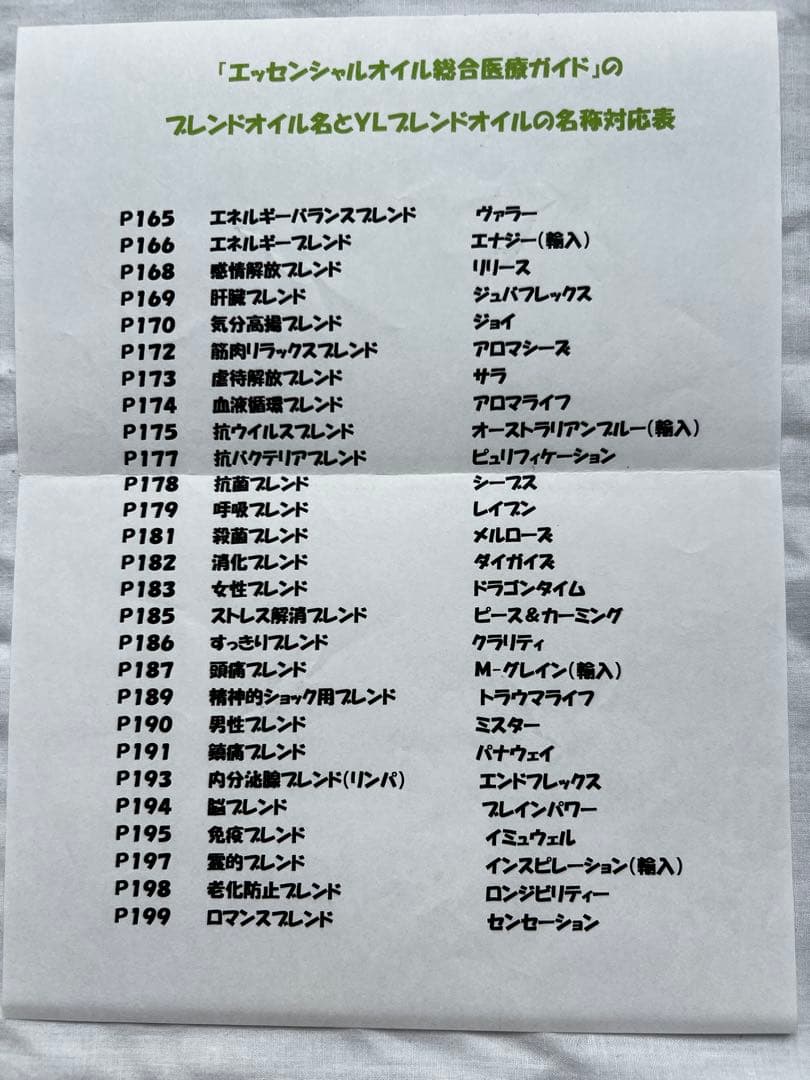 「エッセンシャルオイル総合医療ガイド」の
ブレンドオイル名とYLブレンドオイルの名称対応表
P165 エネルギーバランスブレンド ヴァラー
P166 エネルギーブレンド エナジー(輸入)
P168 感情解放ブレンド リリース
P169 肝臓ブレンド ジュバフレックス
P170 気分高揚ブレンド ジョイ
P172 筋肉リラックスブレンド アロマシーズ
P173 虐待解放ブレンド サラ
P174 血液循環ブレンド アロマライフ
P175 抗ウイルスブレンド オーストラリアンブルー(輸入)
P177 抗バクテリアブレンド ピュリフィケーション
P178 抗菌ブレンド シーブス
P179 呼吸ブレンド レイブン
P181 殺菌ブレンド メルローズ
P182 消化ブレンド ダイガイズ
P183 女性ブレンド ドラゴンタイム
P185 ストレス解消ブレンド ピース&カーミング
P186 すっきりブレンド クラリティ
P187 頭痛ブレンド M-グレイン(輸入)
P189 精神的ショック用ブレンド トラウマライフ
P190 男性ブレンド ミスター
P191 鎮痛ブレンド パナウェイ
P193 内分泌腺ブレンド(リンパ) エンドフレックス
P194 脳ブレンド ブレインパワー
P195 免疫ブレンド イミュウェル
P197 霊的ブレンド インスピレーション(輸入)
P198 老化防止ブレンド ロンジビリティー
P199 ロマンスブレンド センセーション